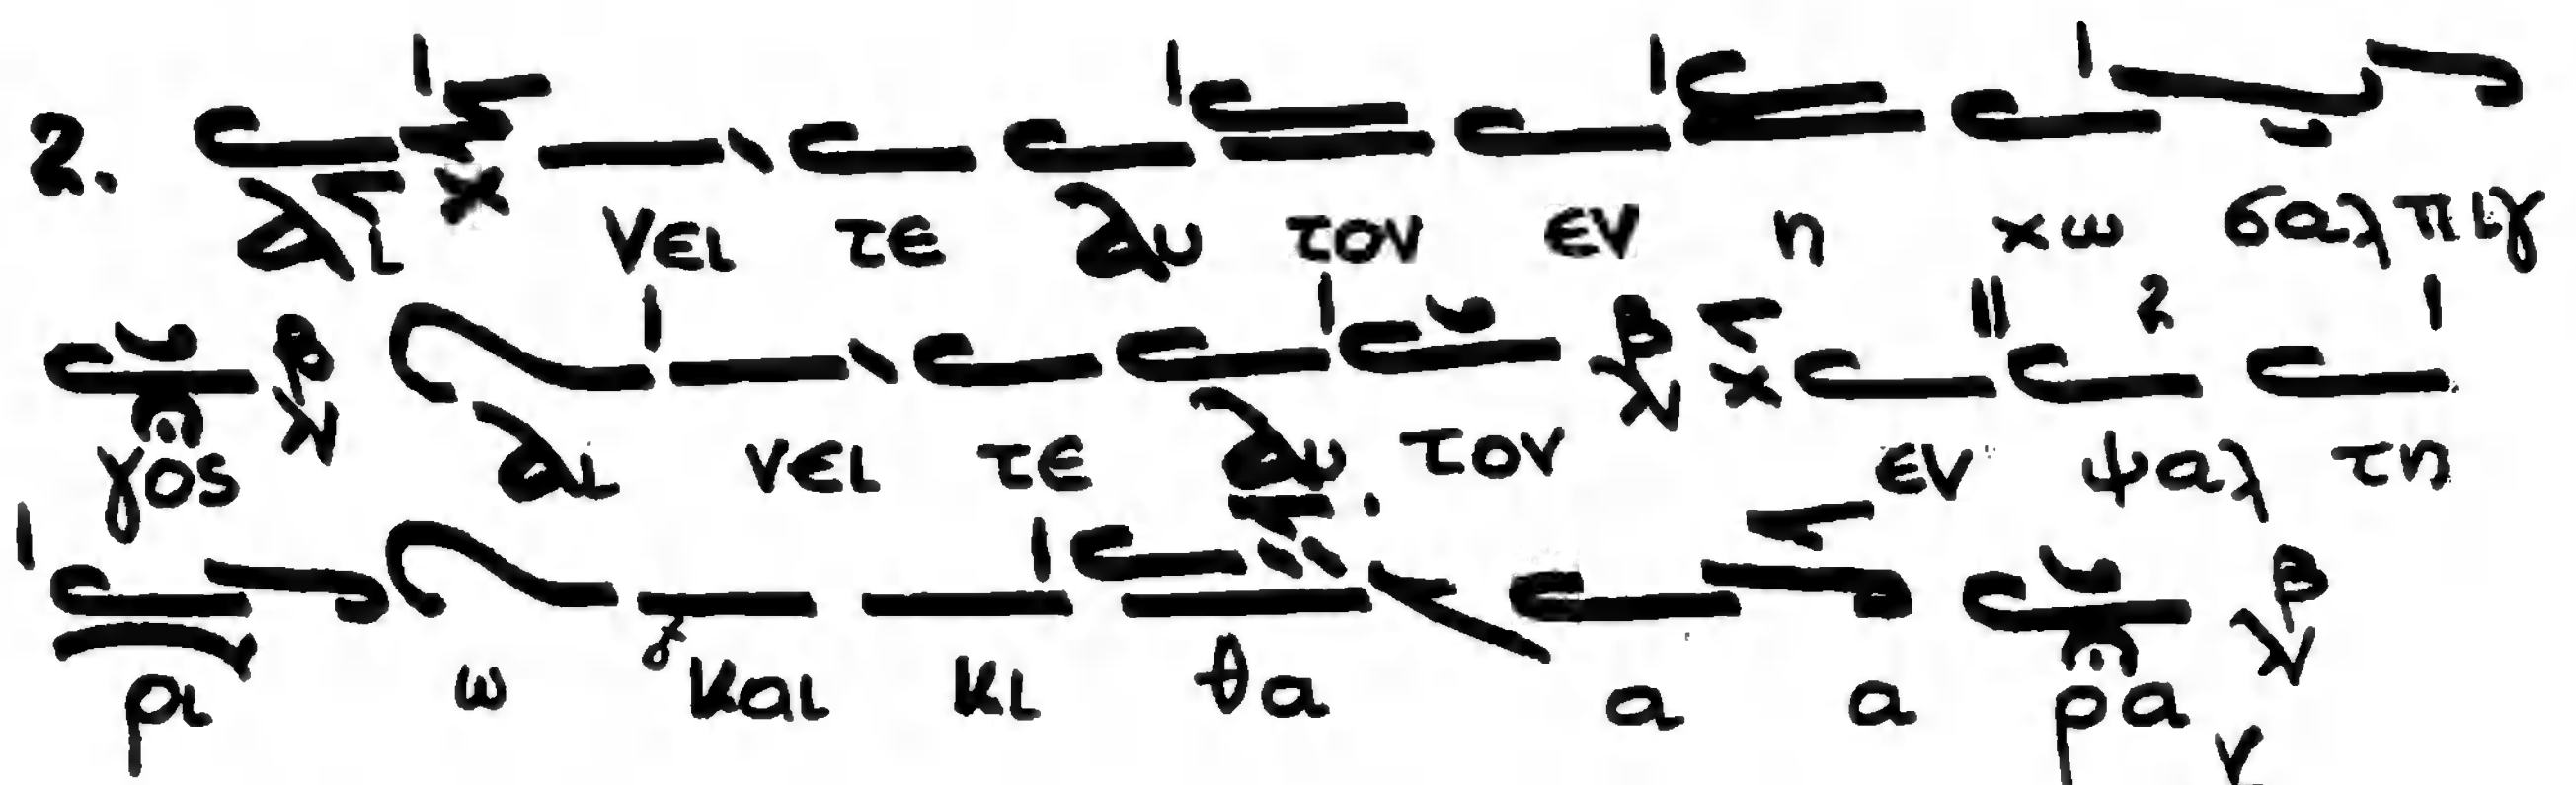 2. αι νει τε αυ τον εν η χω σαλ πιγ
γος αι νει τε αυ τον εν ψαλ τη
ρι ω και κι θα α α ρα